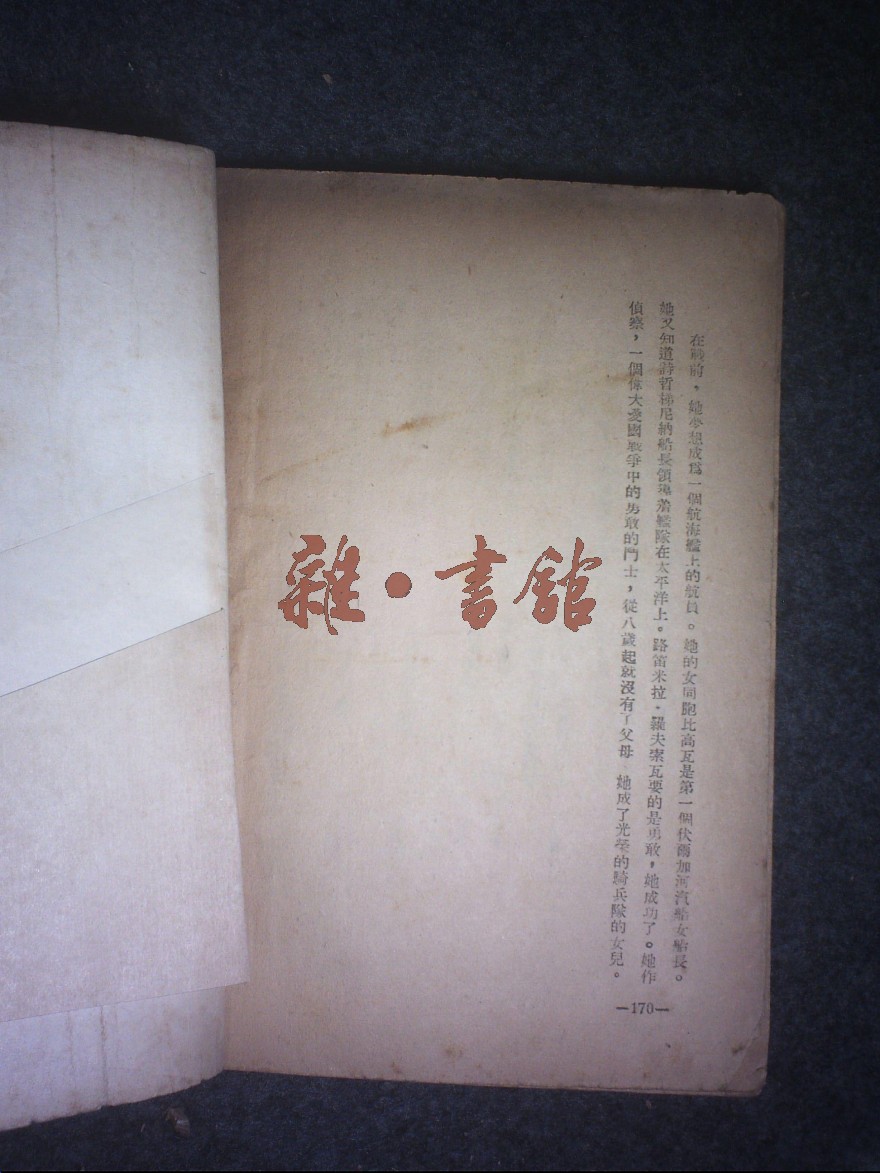 在戰前，她夢想成爲一個航海艦上的航員。她的女同胞比高瓦是第一個伏爾加河汽船女船長。
她又知道詩哲梯尼納船長領導着艦隊在太平洋上。路笛米拉·羅夫索瓦要的是勇敢，她成功了。她作
偵察，一個偉大愛國戰爭中的勇敢的鬥士，從八歲起就沒有了父母、她成了光榮的騎兵隊的女兒。
—170—
雜·書館